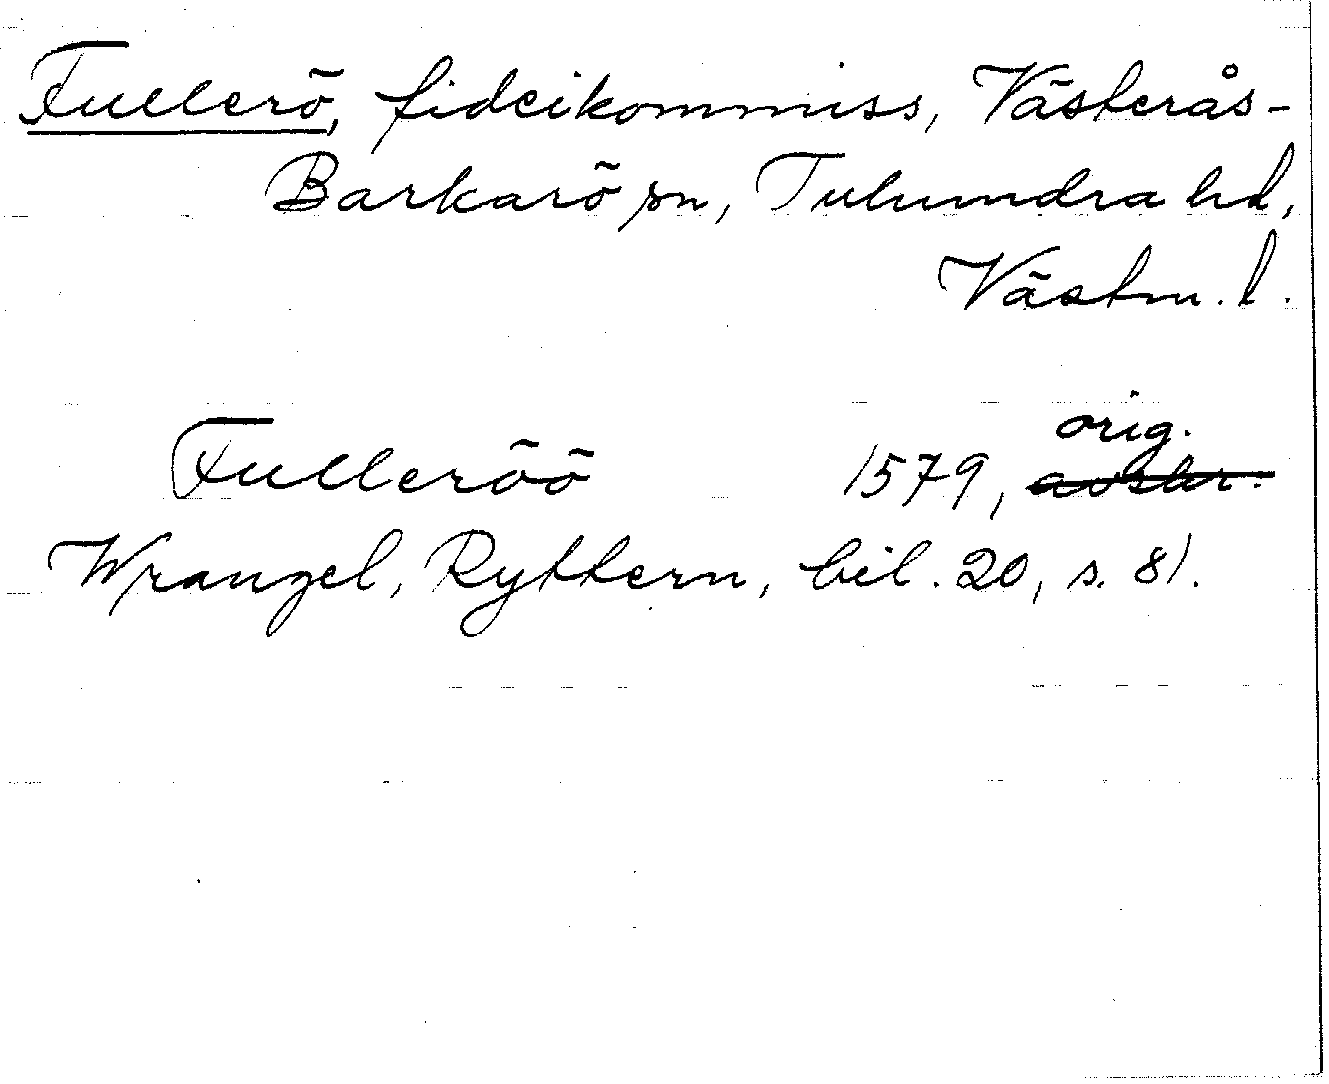 Fullerö, fideikommiss, Västerås-
Barkarö sn, Tuhundra hd,
Västm. l.
orig.
Fulleröö 1579, avskr.
Wrangel, Ryttern, bil. 20, s. 81.